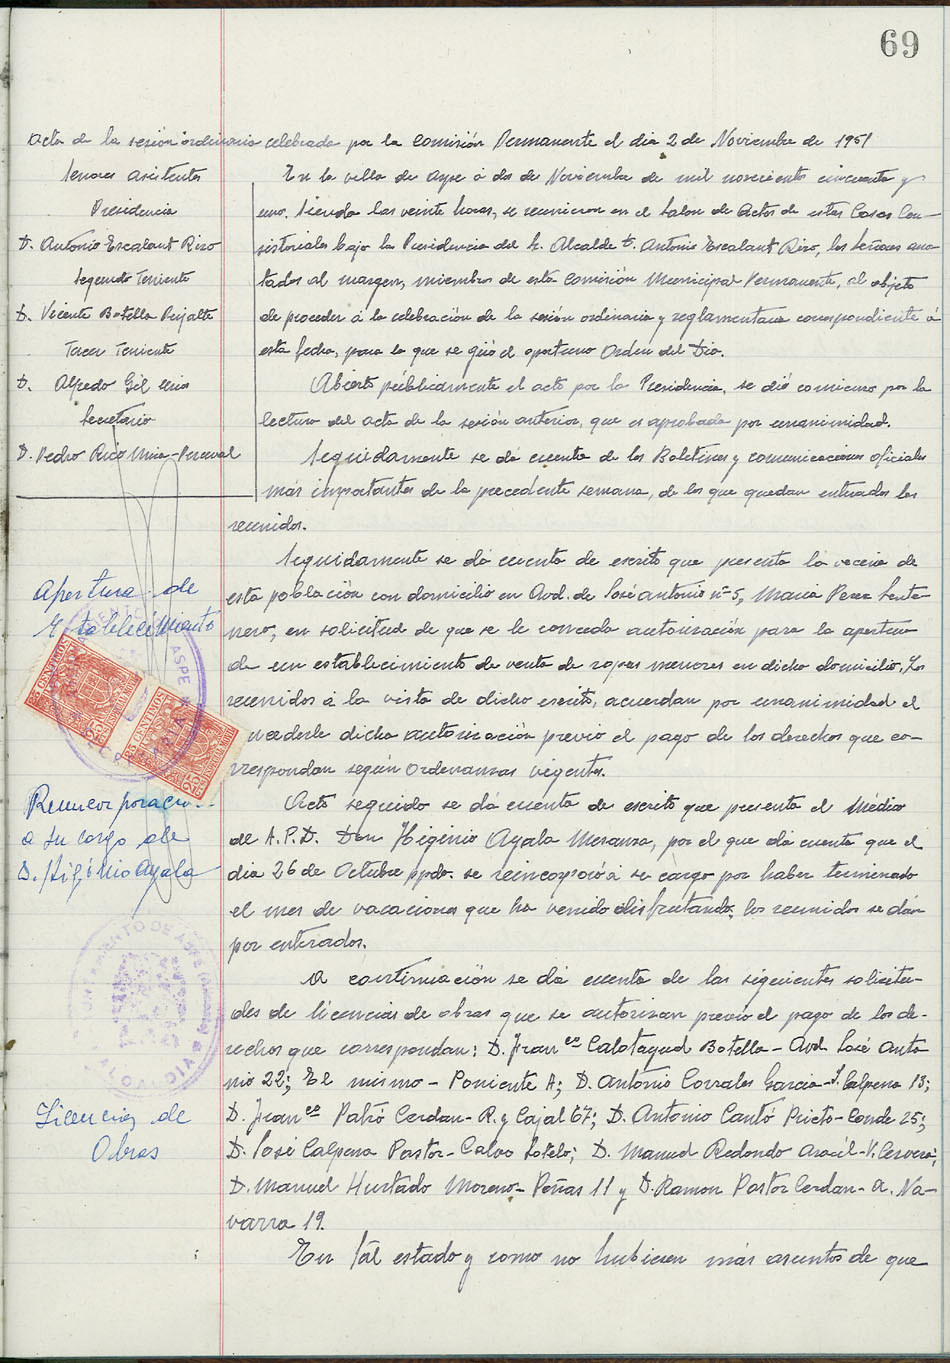 69
Acta de la sesión ordinaria celebrada por la Comisión Permanente el dia 2 de Noviembre de 1951
Señores asistentes
Presidencia
D. Antonio Escalant Rizo
Segundo Teniente
D. Vicente Botella Pujalte
Tercer Teniente
D. Alfredo Gil Mira
Secretario
D. Pedro Rico Mira-Perceval
En la villa de Aspe á dos de Noviembre de mil novecientos cincuenta y
uno. Siendo las veinte horas, se reunieron en el Salon de Actos de estas Casas Con-
sistoriales bajo la Presidencia del Sr. Alcalde D. Antonio Escalant Rizo, los Señores ano-
tados al margen, miembros de esta Comisión Municipal Permanente, al objeto
de proceder á la celebración de la sesión ordinaria y reglamentaria correspondiente á
esta fecha, para la que se giró el oportuno Orden del Dia.
Abierto públicamente el acto por la Presidencia, se dió comienzo por la
lectura del acta de la sesión anterior, que es aprobada por unanimidad.
Seguidamente se dá cuenta de los Boletines y comunicaciones oficiales
más importantes de la precedente semana, de los que quedan enterados los
reunidos.
Apertura de
Establecimiento
Seguidamente se dá cuenta de escrito que presenta la vecina de
esta población con domicilio en Avd. de José Antonio nº 5, Maria Perez Sente-
nero, en solicitud de que se le conceda autorización para la apertura
de un establecimiento de venta de ropas menores en dicho domicilio. Los
reunidos á la vista de dicho escrito, acuerdan por unanimidad el
concederle dicha autorización previo el pago de los derechos que co-
rrespondan según Ordenanzas vigentes.
Reincorporación
a su cargo de
D. Higinio Ayala
Acto seguido se dá cuenta de escrito que presenta el Médico
de A.P.D. Don Higenio Ayala Meranza, por el que dá cuenta que el
dia 26 de Octubre ppdo. se reincorporó á su cargo por haber terminado
el mes de vacaciones que ha venido disfrutando; los reunidos se dán
por enterados.
Licencias de
Obras
A continuación se dá cuenta de las siguientes solicitu-
des de licencias de obras que se autorizan previo el pago de los de-
rechos que correspondan: D. Franco Calatayud Botella - Avd. José Anto-
nio 22; El mismo - Poniente A; D. Antonio Corrales Garcia - S. Calpena 13;
D. Franco Patró Cerdan - R. y Cajal 67; D. Antonio Cantó Prieto - Conde 25;
D. José Calpena Pastor - Calvo Sotelo; D. Manuel Redondo Aracil - V. Cervera;
D. Manuel Hurtado Moreno - Peñas 11 y D. Ramon Pastor Cerdan - A. Na-
varra 19.
En tal estado y como no hubiesen más asuntos de que
25 CENTIMOS
25
25 CENTIMOS
25
AYUNTAMIENTO DE ASPE
ALCALDIA